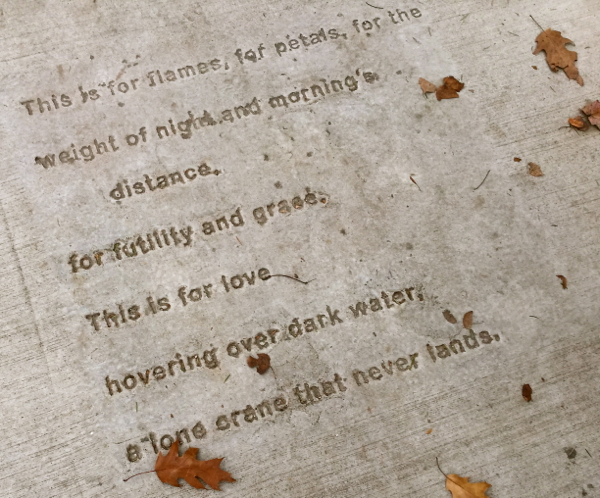 This is for flames, for petals, for the
weight of night and morning's
distance,
for futility and grace.
This is for love
hovering over dark water,
a lone crane that never lands.